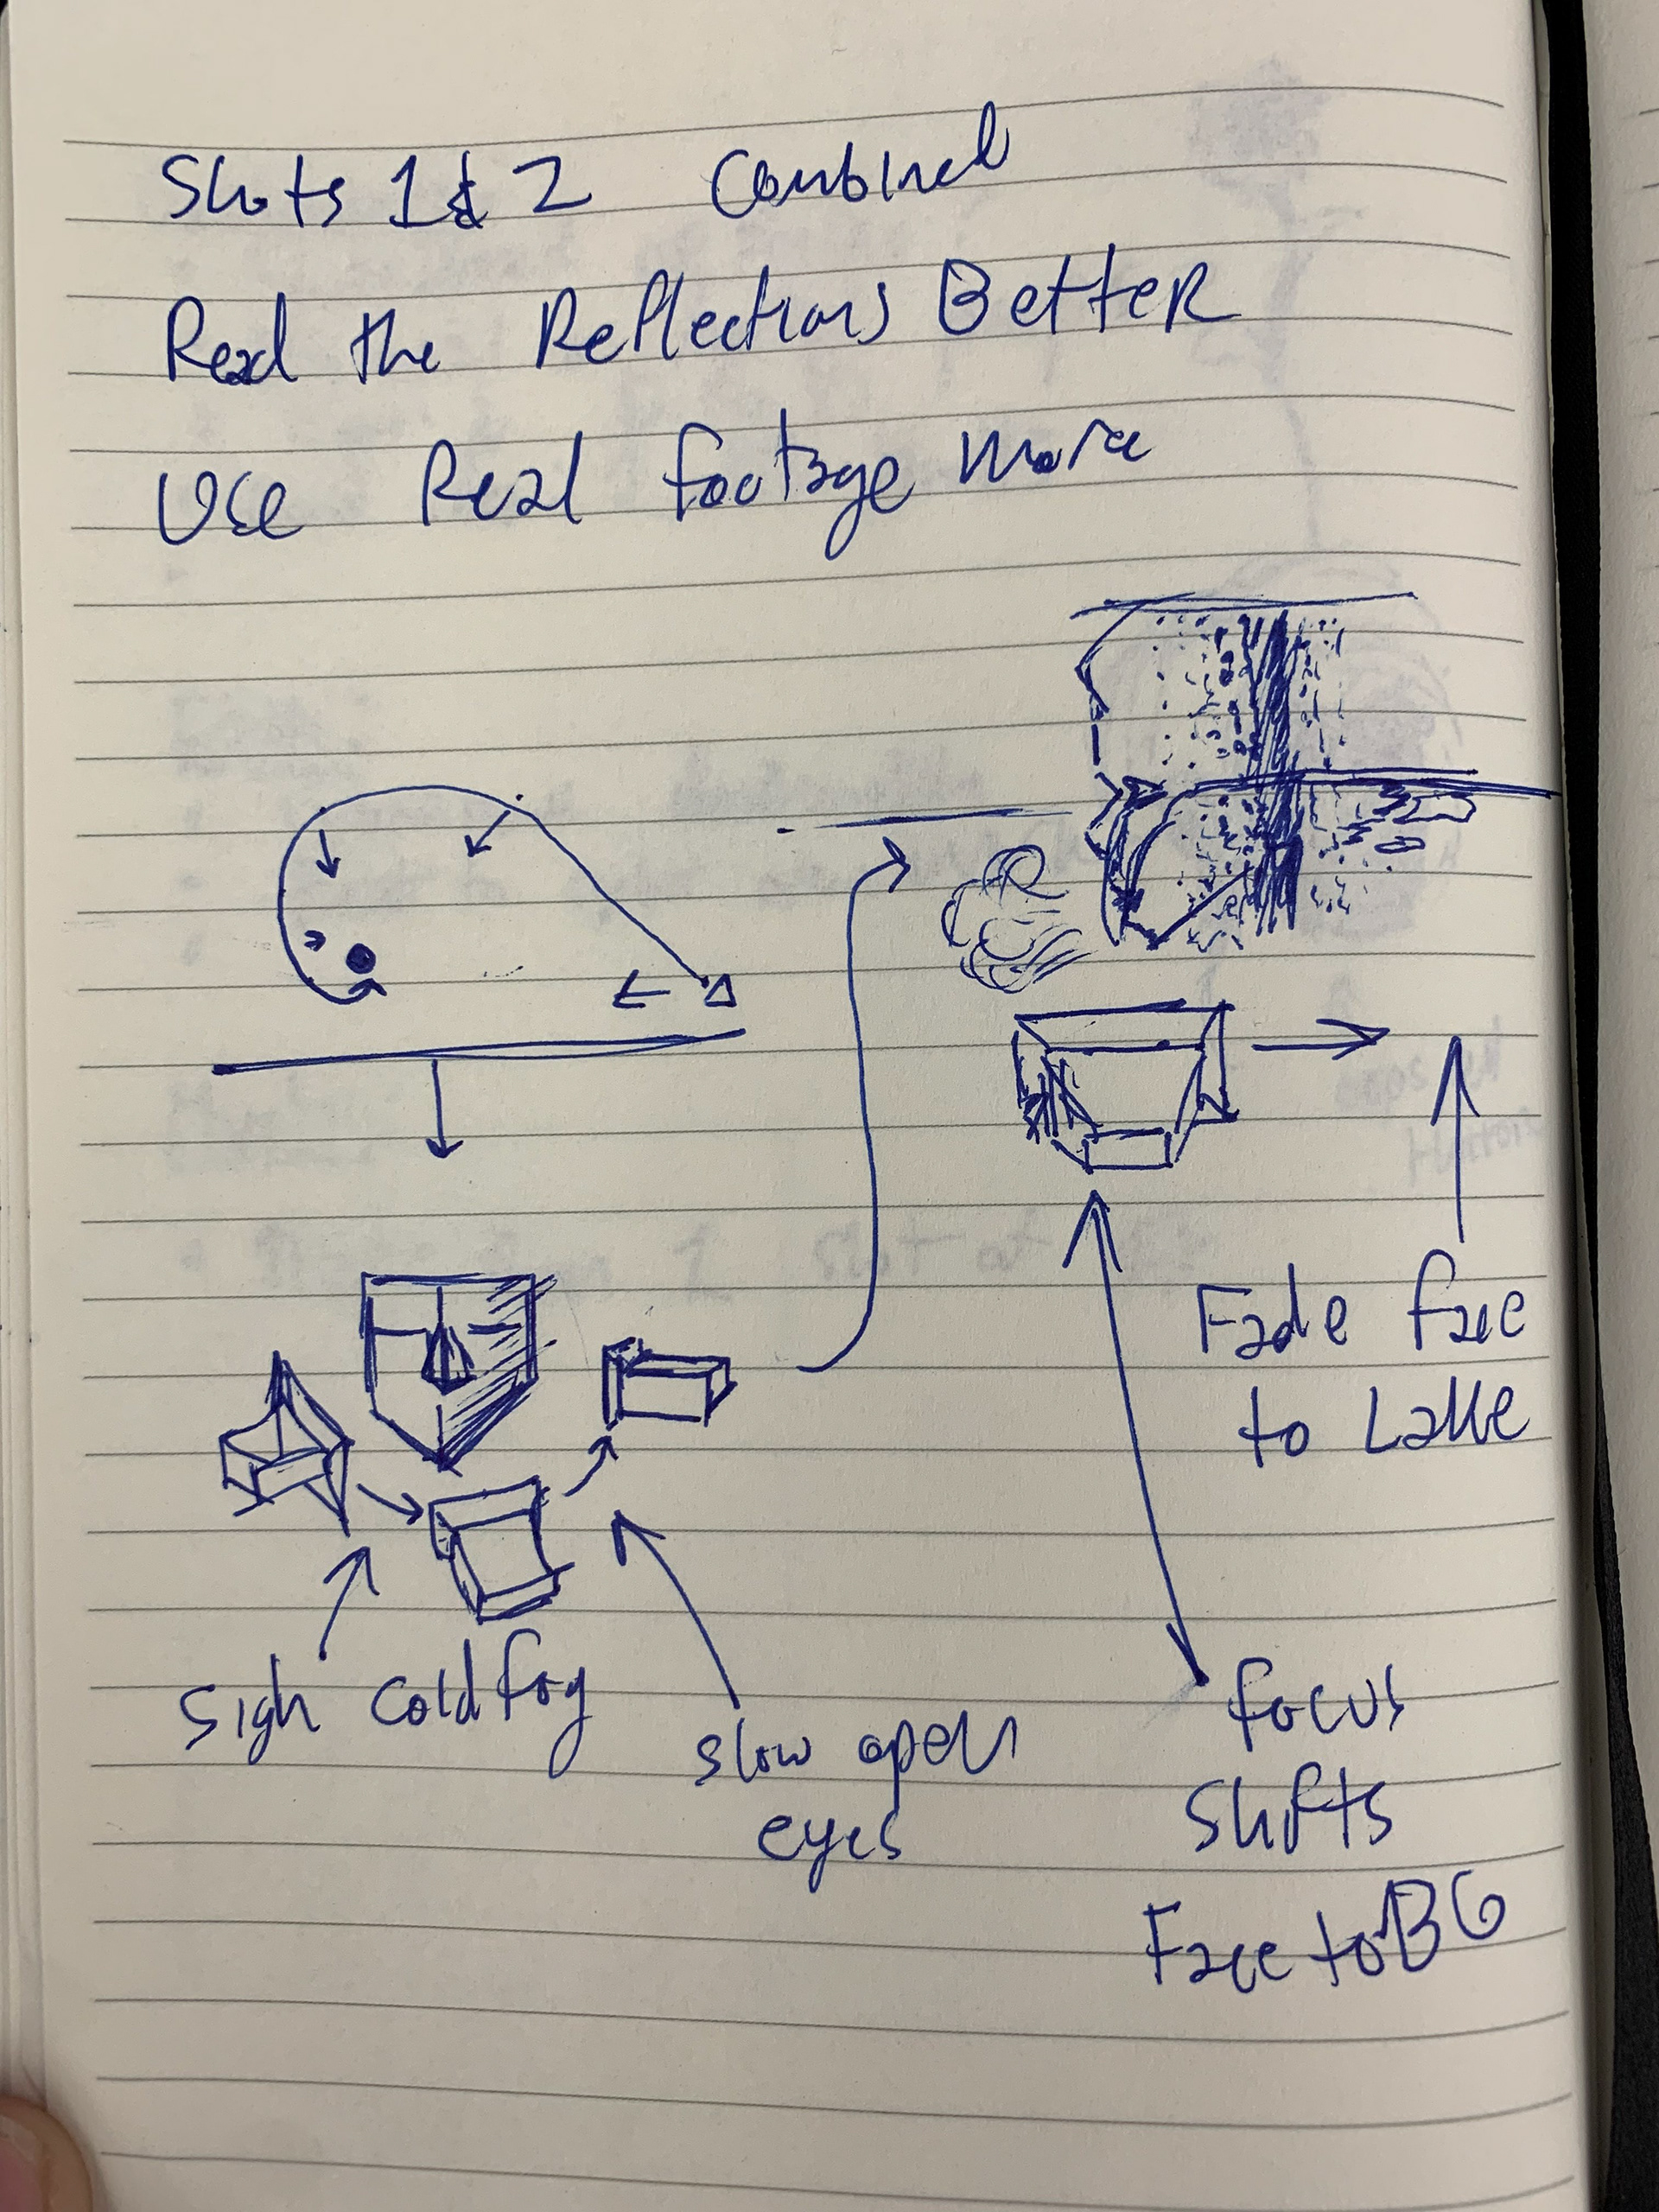 Shots 1 & 2 Combined
Read the Reflections Better
Use Real footage more
Fade face
to Lake
Sigh cold fog
slow open
eyes
focus
Shifts
Face to BG